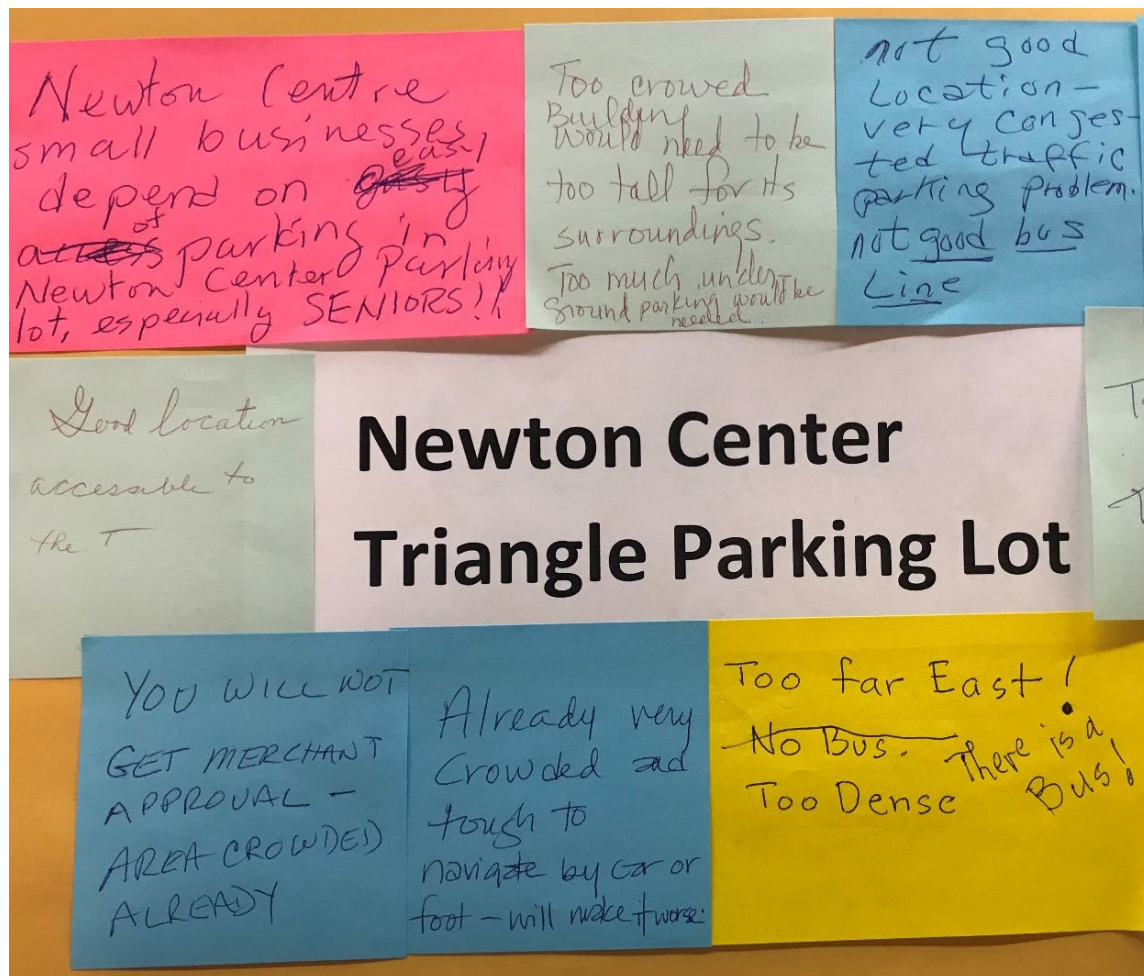 Newton Centre
small businesses
depend on easy
of parking in
Newton Center Parking
lot, especially SENIORS!!
Too crowed
Building
would need to be
too tall for its
surroundings.
Too much under
ground parking would be
needed.
not good
Location -
very conges-
ted traffic
parking problem.
not good bus
Line
Good location
accessible to
the T
Newton Center
Triangle Parking Lot
YOU WILL NOT
GET MERCHANT
APPROVAL -
AREA CROWDED
ALREADY
Already very
Crowded and
tough to
navigate by car or
foot - will make it worse.
Too far East!
No Bus.
Too Dense
There is a
Bus!